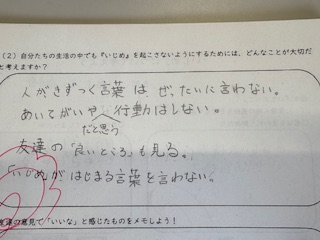 (2)自分たちの生活の中でも『いじめ』を起こさないようにするためには、どんなことが大切だ
と考えますか?
人がきずつく言葉は、ぜったいに言わない。
あいてがいやだと思う行動はしない。
友達の「良いところ」も見る。
いじめがはじまる言葉を言わない。
友達の意見で「いいな」と感じたものをメモしよう!